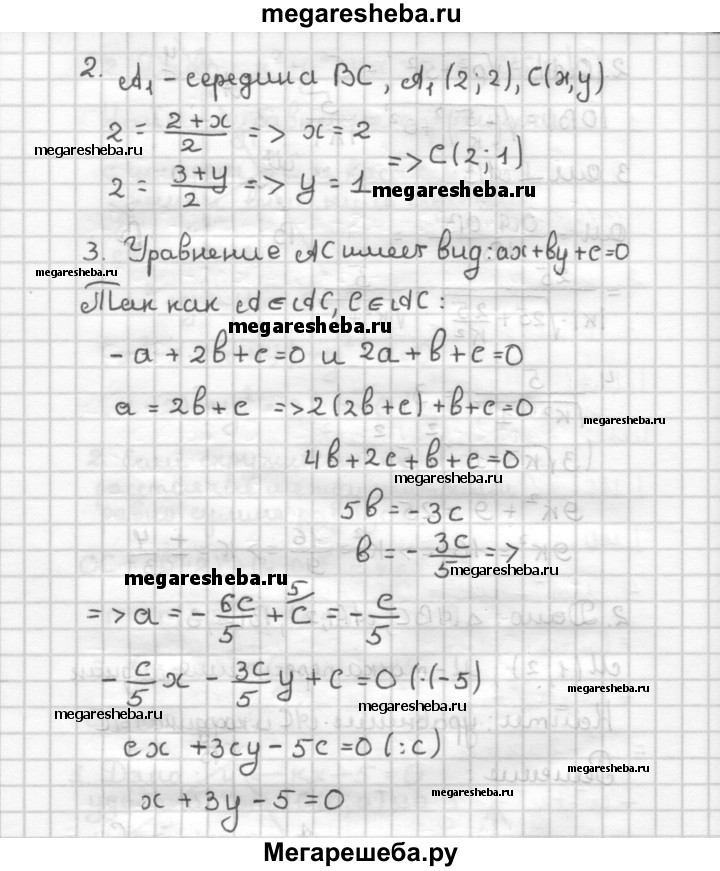 megaresheba.ru
2. A₁ - середина BC, A₁(2; 2), C(x, y)
2 = (2+x)/2 => x = 2
megaresheba.ru
=> C(2; 1)
2 = (3+y)/2 => y = 1
megaresheba.ru
3. Уравнение AC имеет вид: ax+by+c=0
megaresheba.ru
Так как A ∈ AC, C ∈ AC:
megaresheba.ru
-a + 2b + c = 0 и 2a + b + c = 0
a = 2b + c => 2(2b + c) + b + c = 0
megaresheba.ru
4b + 2c + b + c = 0
megaresheba.ru
5b = -3c
b = -3c/5 =>
megaresheba.ru
megaresheba.ru
=> a = -6c/5 + c^{5/} = -c/5
-c/5 x - 3c/5 y + c = 0 (·(-5)
megaresheba.ru
megaresheba.ru
megaresheba.ru
cx + 3cy - 5c = 0 (:c)
megaresheba.ru
x + 3y - 5 = 0
megaresheba.ru
Мегарешеба.ру